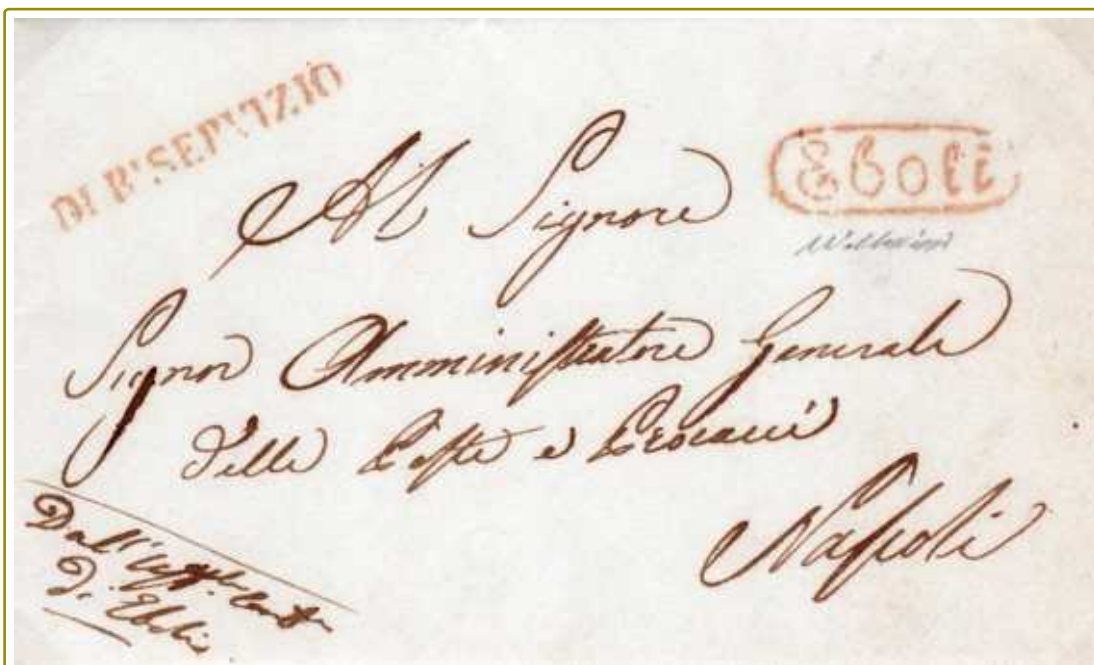 DI R. SERVIZIO
Eboli
Al Signore
Signor Amministratore Generale
delle Poste e Procacci
Napoli
Dall'Uff.
Di Eboli